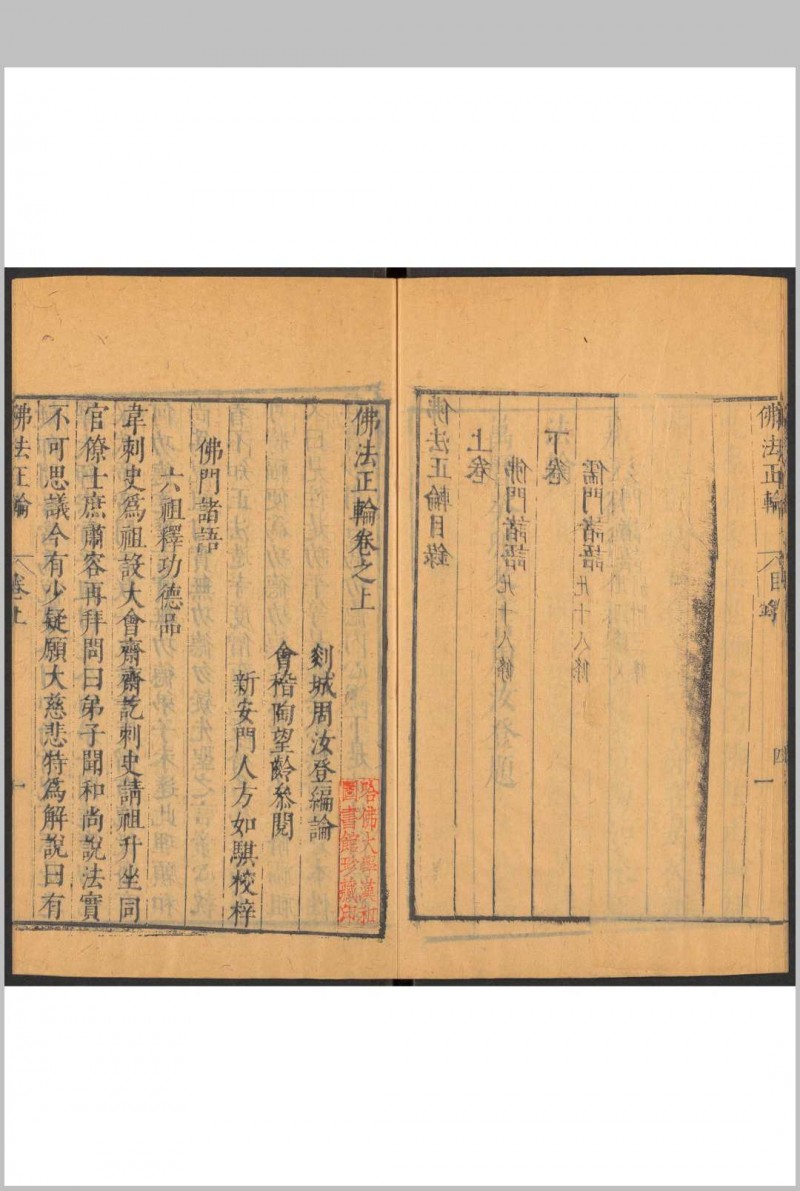 佛法正輪 目錄 一
佛法正輪目錄
上卷
佛門諸語 九十八條
下卷
儒門諸語 九十八條
佛法正輪卷之上
剡城周汝登編論
會稽陶望齡叅閱
新安門人方如騏校梓
哈佛大學漢和
圖書館珍藏印
佛門諸語
六祖釋功德品
韋刺史爲祖設大會齋齋訖刺史請祖升坐同
官僚士庶肅容再拜問曰弟子聞和尚說法實
不可思議今有少疑願大慈悲特爲解說曰有
佛法正輪 卷上 一